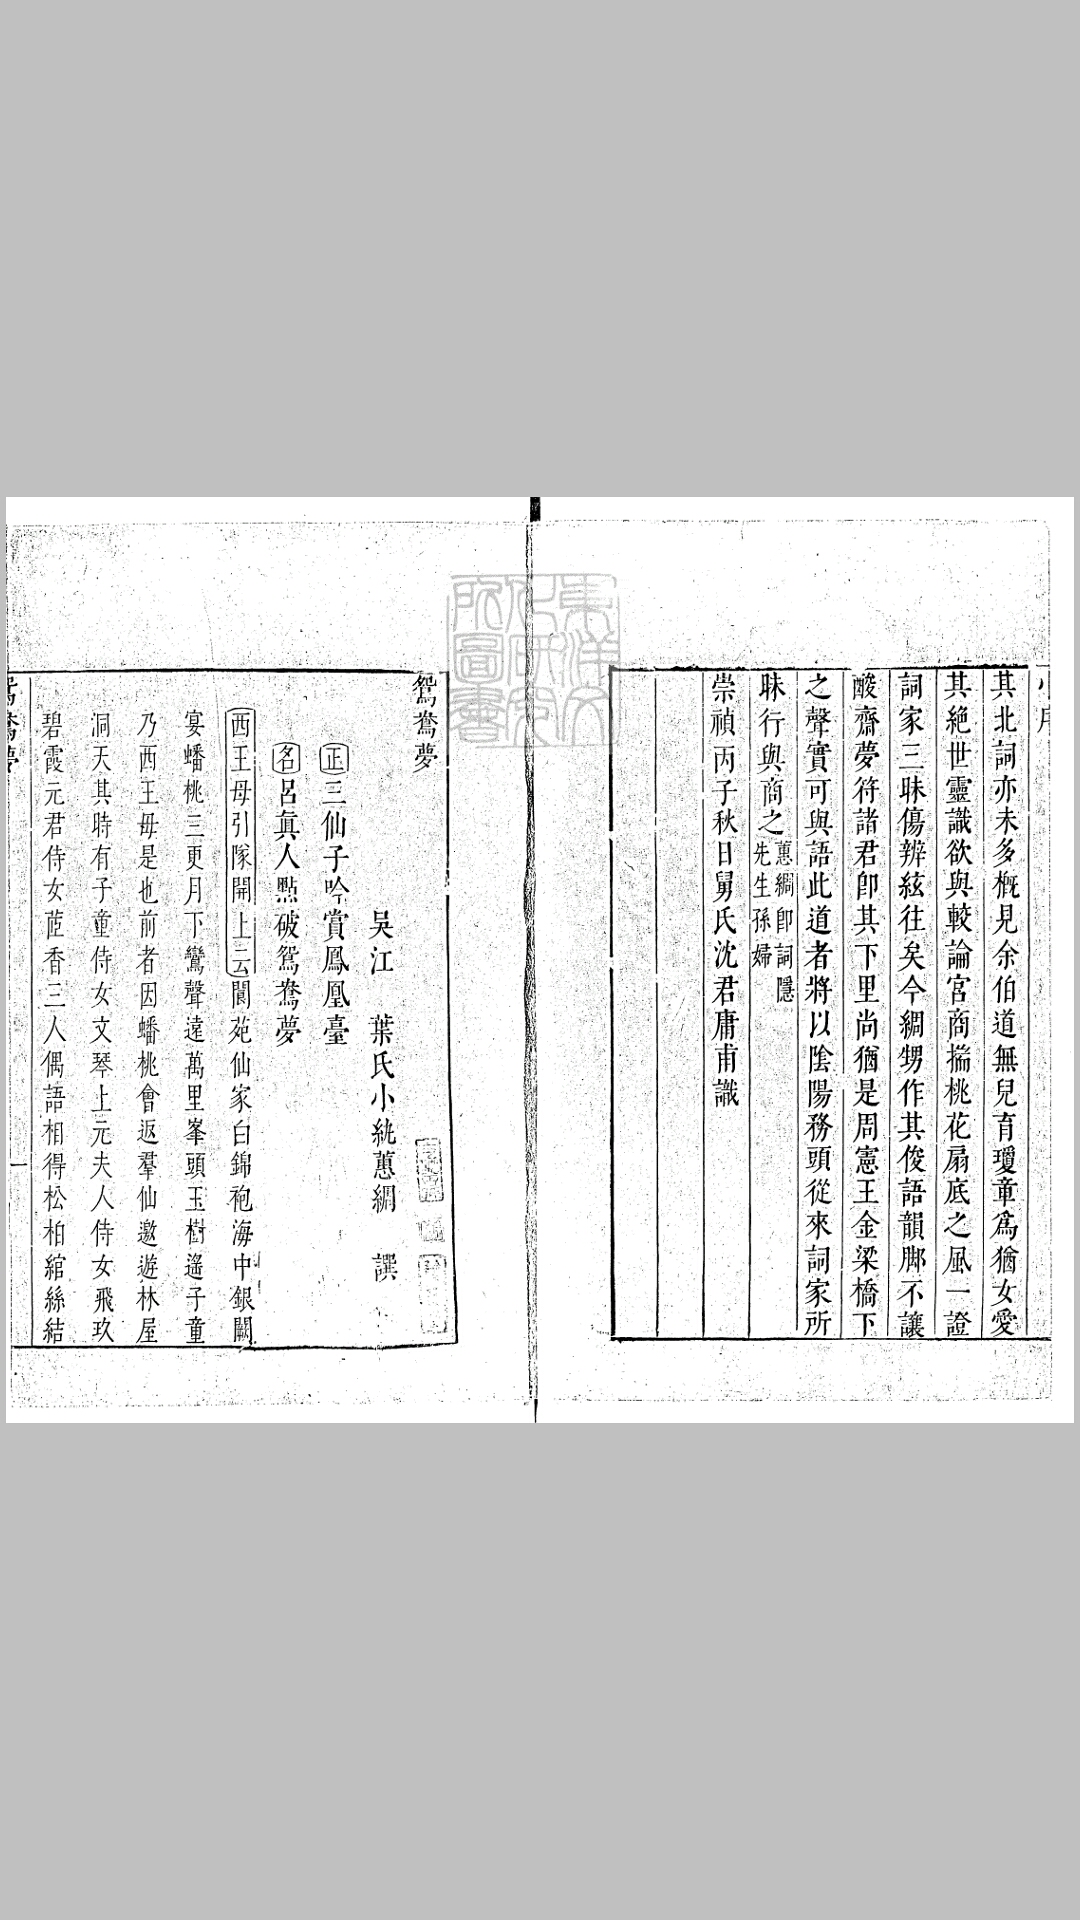 其北詞亦未多槪見余伯道無兒育瓊童爲猶女愛
其絕世靈識欲與較論宮商揣桃花扇底之風一證
詞家三昧傷辨絃往矣今綢甥作其俊語韻脚不讓
酸齋夢符諸君卽其下里尚猶是周憲王金梁橋下
之聲實可與語此道者將以陰陽務頭從來詞家所
昧行與商之蕙綢卽詞隱先生孫婦
崇禎丙子秋日舅氏沈君庸甫識
鴛鴦夢
吳江 葉氏小紈蕙綢 譔
正三仙子吟賞鳳凰臺
名呂眞人點破鴛鴦夢
西王母引隊開上云閬苑仙家白錦袍海中銀闕
宴蟠桃三更月下鸞聲遠萬里峯頭玉樹遙子童
乃西王母是也前者因蟠桃會返羣仙邀遊林屋
洞天其時有子童侍女文琴上元夫人侍女飛玖
碧霞元君侍女茝香三人偶語相得松柏綰絲結
鴛鴦夢
一
東洋文化研究所圖書